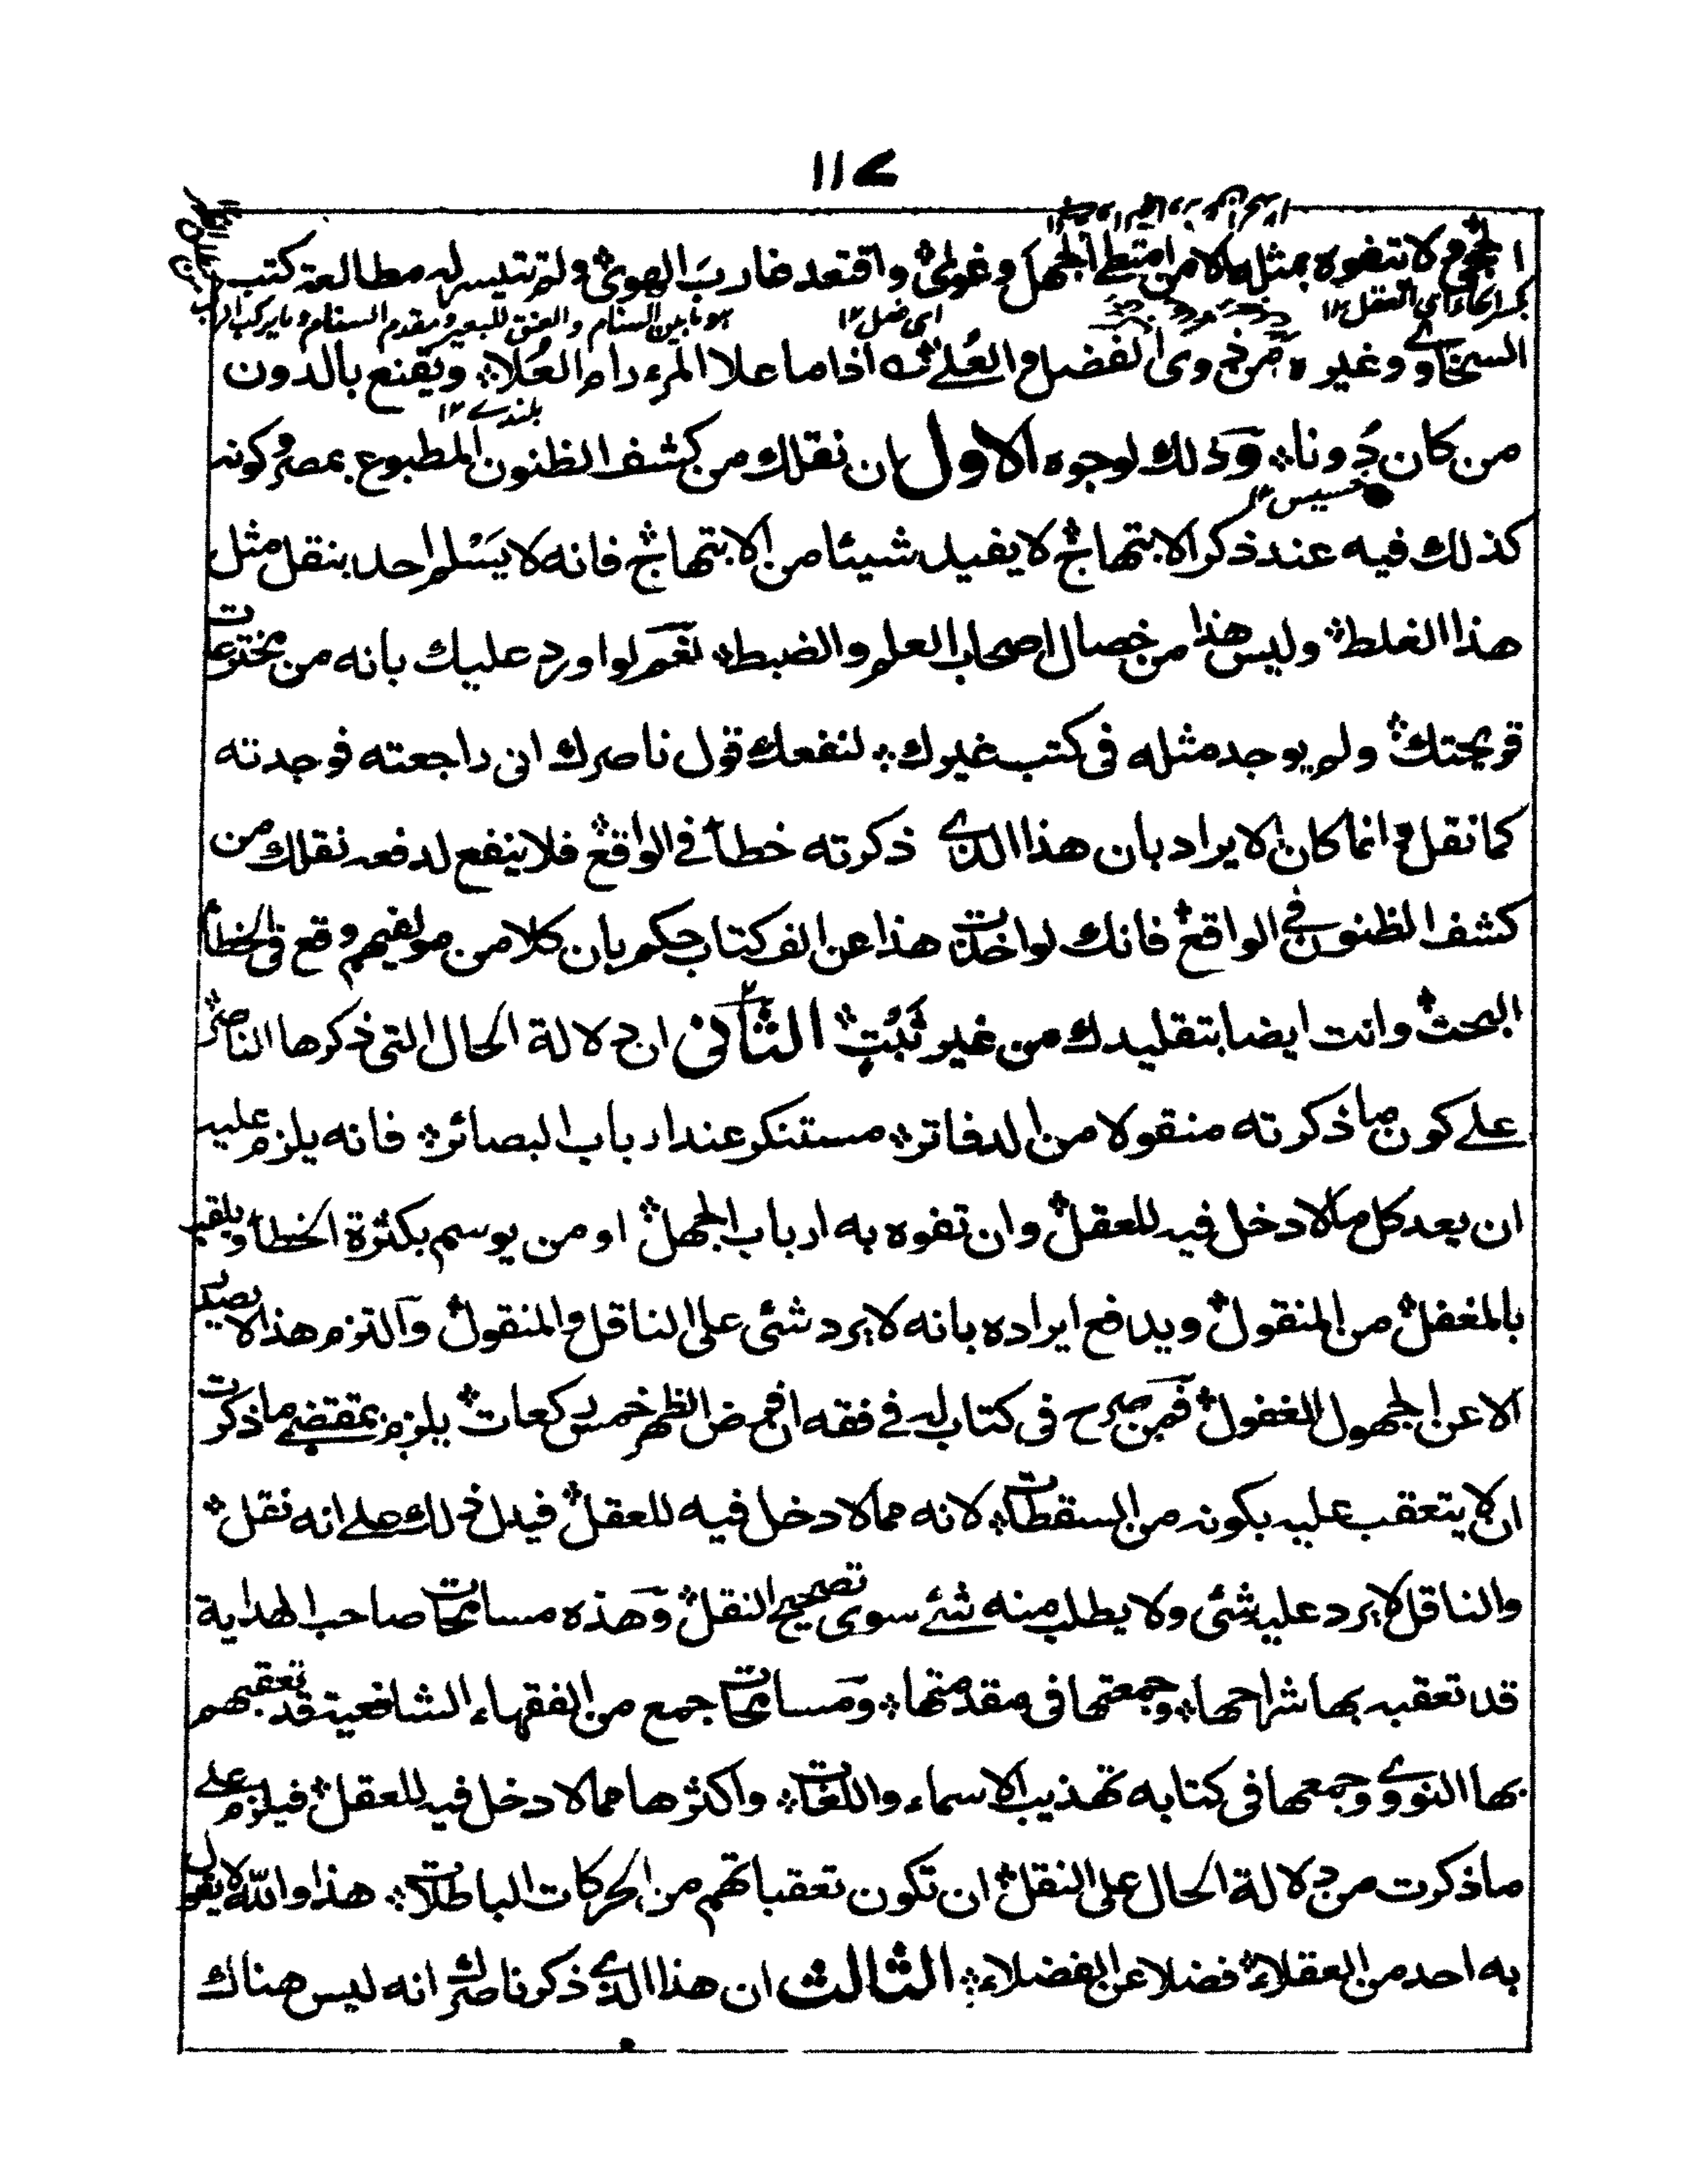 ١١٧
الحجى ولا تتفوه بمثل هذا الا من امتطى الجهل وغوى واقتعد غارب الهوى ولم تتيسر له مطالعة كتب
بكسر الحاء اى العقل ١٢ اى فضل ١٢ هو ما بين السنام والعنق للبعير ومقدم السنام وما يركب الراكب
السخاوي وغيره من ذوى الفضل والعلى ؎ اذا ما علا المرء رام العلا ؞ ويقنع بالدون
بلندے ١٢
من كان دونا ؞ وذلك لوجوه الاول ان نقلك من كشف الظنون المطبوع بمصر وكونه
خسيس ١٢
كذلك فيه عند ذكر الابتهاج ؞ لا يفيد شيئا من الابتهاج ؞ فانه لا يسلم احد بنقل مثل
هذا الغلط ؞ وليس هذا من خصال اصحاب العلم والضبط ؞ نعم لو اورد عليك بانه من مخترعات
قريحتك ؞ ولم يوجد مثله فى كتب غيرك ؞ لنفعك قول ناصرك انى راجعته فوجدته
كما نقل ؞ وانما كان الايراد بان هذا الذي ذكرته خطأ في الواقع ؞ فلا ينفع لدفعه نقلك من
كشف الظنون في الواقع ؞ فانك لو اخذت هذا عن الف كتاب حكم بان كلا من مولفيهم وقع فى الخطأ
البحث ؞ وانت ايضا بتقليدك من غير ثبت ؞ الثانى ان دلالة الحال التى ذكرها الناصر ؞
على كون ما ذكرته منقولا من الدفاتر ؞ مستنكر عند ارباب البصائر ؞ فانه يلزم عليه
ان يعد كل ما لا دخل فيه للعقل ؞ وان تفوه به ارباب الجهل ؞ او من يوسم بكثرة الخطأ ويلقب
بالمغفل ؞ من المنقول ؞ ويدفع ايراده بانه لا يرد شئ على الناقل والمنقول ؞ والتزم هذا لا يصدر
الا عن الجهول المغفول ؞ فمن صرح فى كتاب له في فقه ان فرض الظهر خمس ركعات ؞ يلزم بمقتضى ما ذكرت
ان لا يتعقب عليه بكونه من السقطات ؞ لانه مما لا دخل فيه للعقل ؞ فيدل ذلك على انه نقل ؞
والناقل لا يرد عليه شئ ولا يطلب منه شئ سوى تصحيح النقل ؞ وهذه مسامحات صاحب الهداية
قد تعقبه بها شراحها ؞ وجمعتها فى مقدمتها ؞ ومسامحات جمع من الفقهاء الشافعية قد تعقبهم
بها النووي وجمعها فى كتابه تهذيب الاسماء واللغات ؞ واكثرها مما لا دخل فيه للعقل ؞ فيلزم على
ما ذكرت من دلالة الحال على النقل ؞ ان تكون تعقباتهم من الحركات الباطلات ؞ هذا والله لا يقول
به احد من العقلاء ؞ فضلا عن الفضلاء ؞ الثالث ان هذا الذي ذكر ناصرك انه ليس هناك